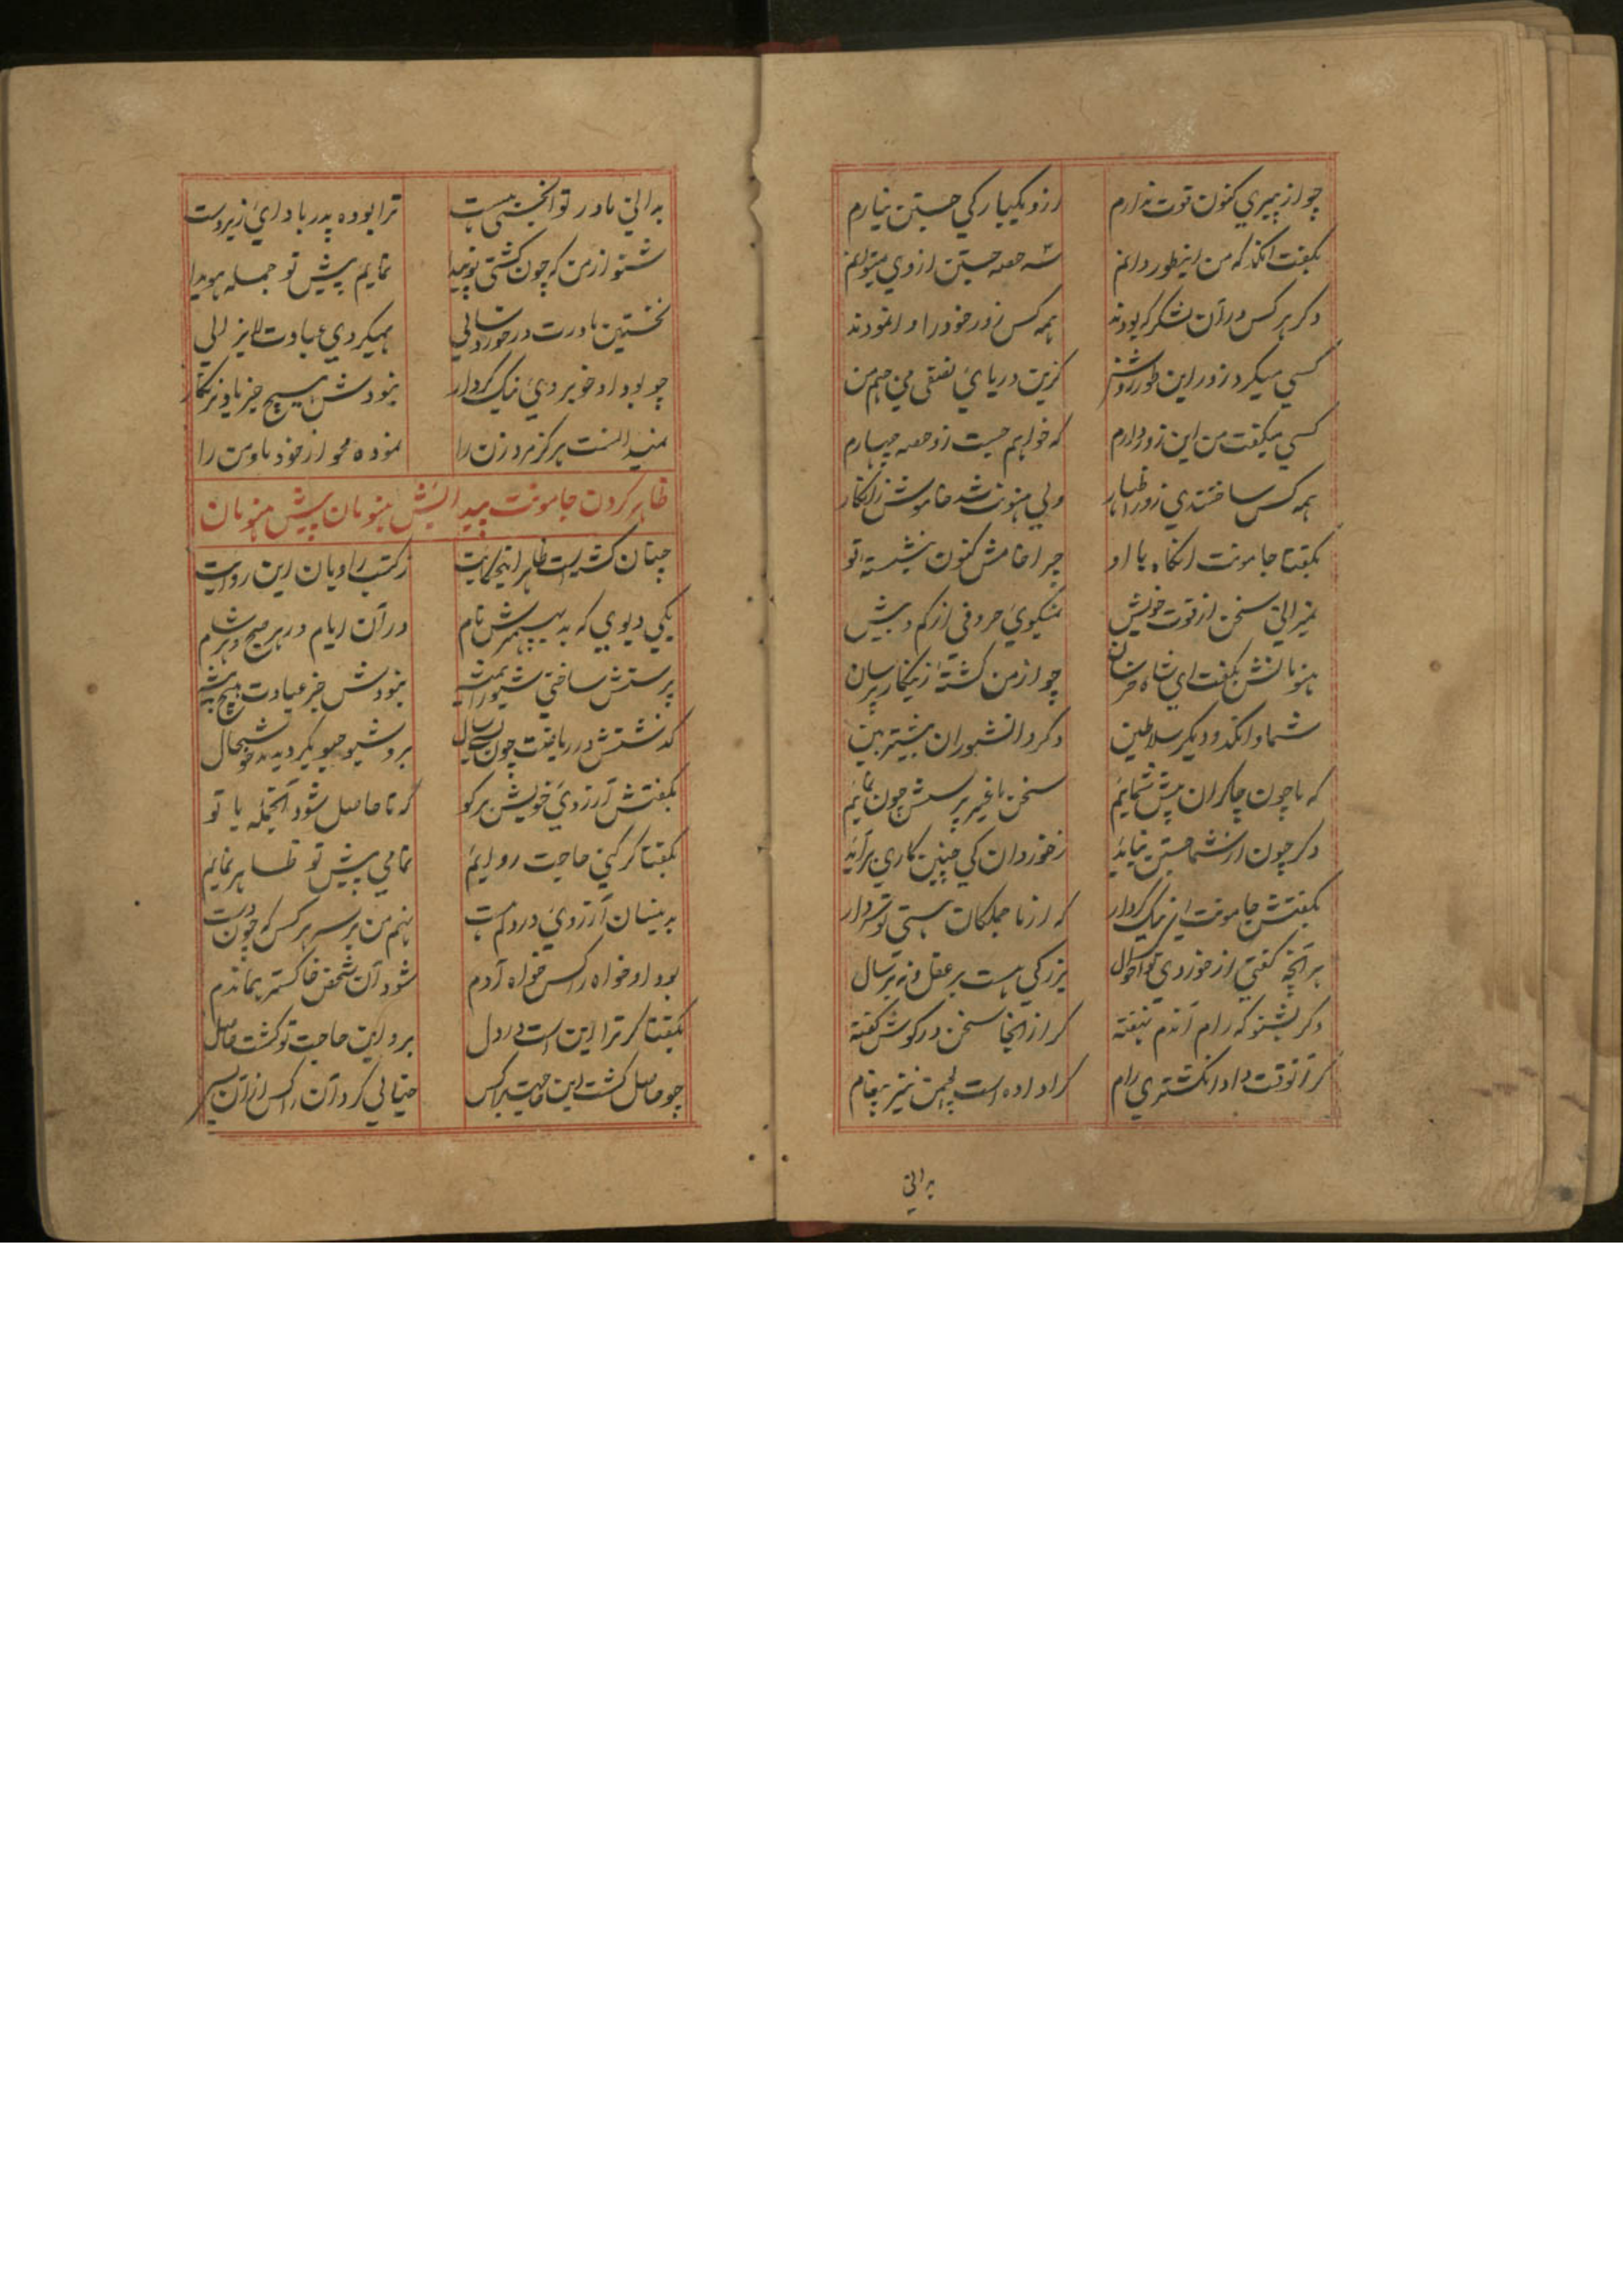 چو از پیری کنون قوت ندارم ازو یکبارکی جستن نیارم
بگفت انگد که من اینطور دانم سه حصه جستن ازوی میتوانم
دکر هر کس در آن لشکر که بودند همه کس زور خود را وانمودند
کسی میکرد زور این طور روشن کزین دریای نصفی می جهم من
کسی میکفت من این زور دارم که خواهم جست زو حصه چهارم
همه کس ساختندی زور اظهار ولی هنونت شد خاموش زانکار
بگفتا جامونت انگاه با او چرا خامش کنون بنشسته تو
نمیرانی سخن از قوت خویش نمیکوی حروفی از کم و بیش
هنومانش بگفت ای شاه خرسان چو از من کشتهٔ زینکار پرسان
شما و انگد و دیکر سلاطین دکر دانشوران بیشتر بین
که ما چون چاکران پیش شمایم سخن ناغیر پرسش چون نمایم
دکر چون از شما جستن نیاید ز خوردان کی چنین کاری برآید
بگفتش جامونت ای نیک کردار که از ما جملکان هستی تو سردار
هر آنچه کفتی از خوردی تو احوال بزرکی هست بر عقل و نه بر سال
دکر بشنو که رام آندم نهفته کرا زانجا سخن در کوش کفته
کرا آنوقت داد انکشتری رام کرا داده است لچمن نیز پیغام
بدانی
بدانی مادر تو انجنی هست ترا بوده پدر باد ای زبردست
شنو از من که چون کشتی تو پیدا نمایم پیش تو جمله هویدا
نخستین مادرت در خوردسالی همیکردی عبادت لایزالی
چو بود او خوبروی نیک کردار نبودش هیچ جز یاد نرنکار
نمیدانست هرکز مرد زن را نموده محو از خود ما و من را
ظاهر کردن جامونت پیدایش هنومان پیش هنومان
چنان کشت است ظاهر اینحکایت ز کتب راویان این روایت
یکی دیوی که بد بهسمیش نام در آن ایام در هر صبح و هر شام
پرستش ساختی شیو را همیشه نبودش جز عبادت هیچ پیشه
کذشتش در ریاضت چون بسی سال برو شیو جیو یکردیده خوشحال
بگفتش آرزوی خویش برکو که تا حاصل شود آنجمله با تو
بگفتا کر کنی حاجت روایم تمامی پیش تو ظاهر نمایم
بدینسان آرزوی در دلم هست نهم من بر سر هر کس که چون دست
بود او خواه راکس خواه آدم شود آن شخص خاکستر بماندم
بگفتا کر ترا این است در دل برو این حاجت تو کشت حاصل
چو حاصل کشت این حاجت براکس خیالی کرد آن راکس ازان پس